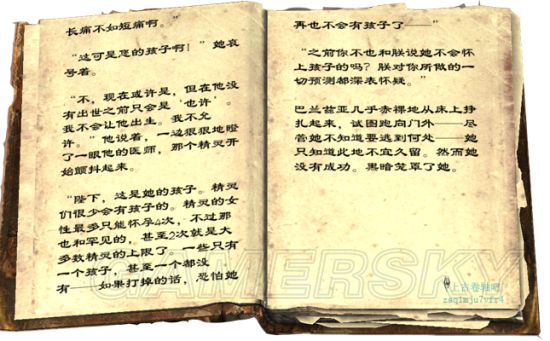 长痛不如短痛啊。”
“这可是您的孩子啊！”她哀
号着。
“不，现在或许是，但在他没
有出世之前只会是‘也许’。
我不会让他出生。我不允
许。”他说着，一边狠狠地瞪
了一眼他的医师，那个精灵开
始颤抖起来。
“陛下，这是她的孩子。精灵
们很少会有孩子的。精灵的女
性最多只能怀孕4次，不过那
也和罕见的，甚至2次就是大
多数精灵的上限了。一些只有
一个孩子，甚至一个都没
有——如果打掉的话，恐怕她
再也不会有孩子了——”
“之前你不也和朕说她不会怀
上孩子的吗？朕对你所做的一
切预测都深表怀疑。”
巴兰兹亚几乎赤裸地从床上挣
扎起来，试图跑向门外——尽
管她不知道要逃到何处——她
只知道此地不宜久留。然而她
没有成功。黑暗笼罩了她。
GAMERSKY
上古卷轴吧
zsq1mju7vfr4